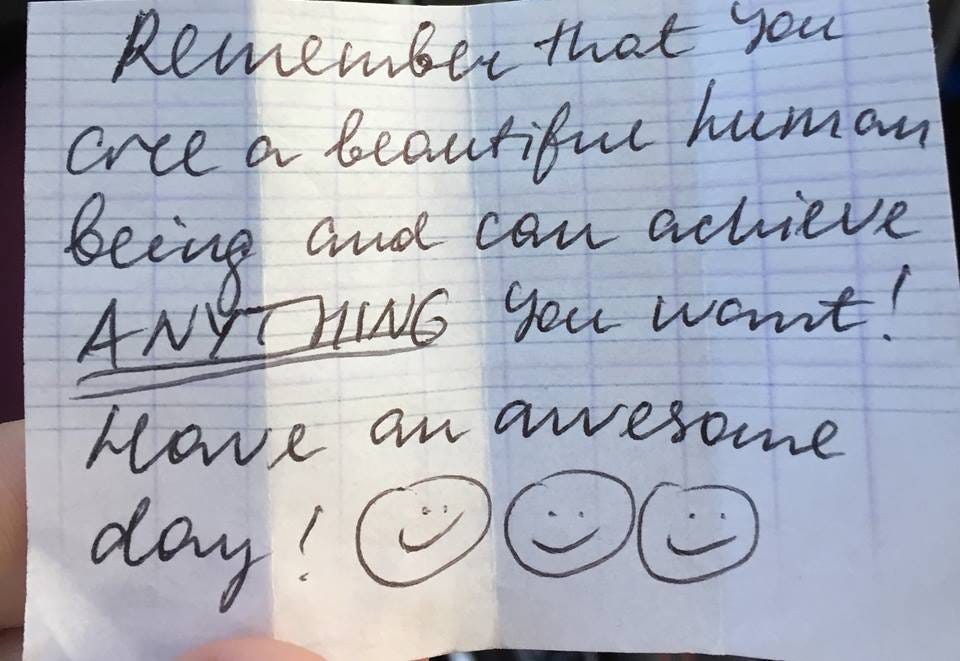 Remember that you
are a beautiful human
being and can achieve
ANYTHING you want!
Have an awesome
day!